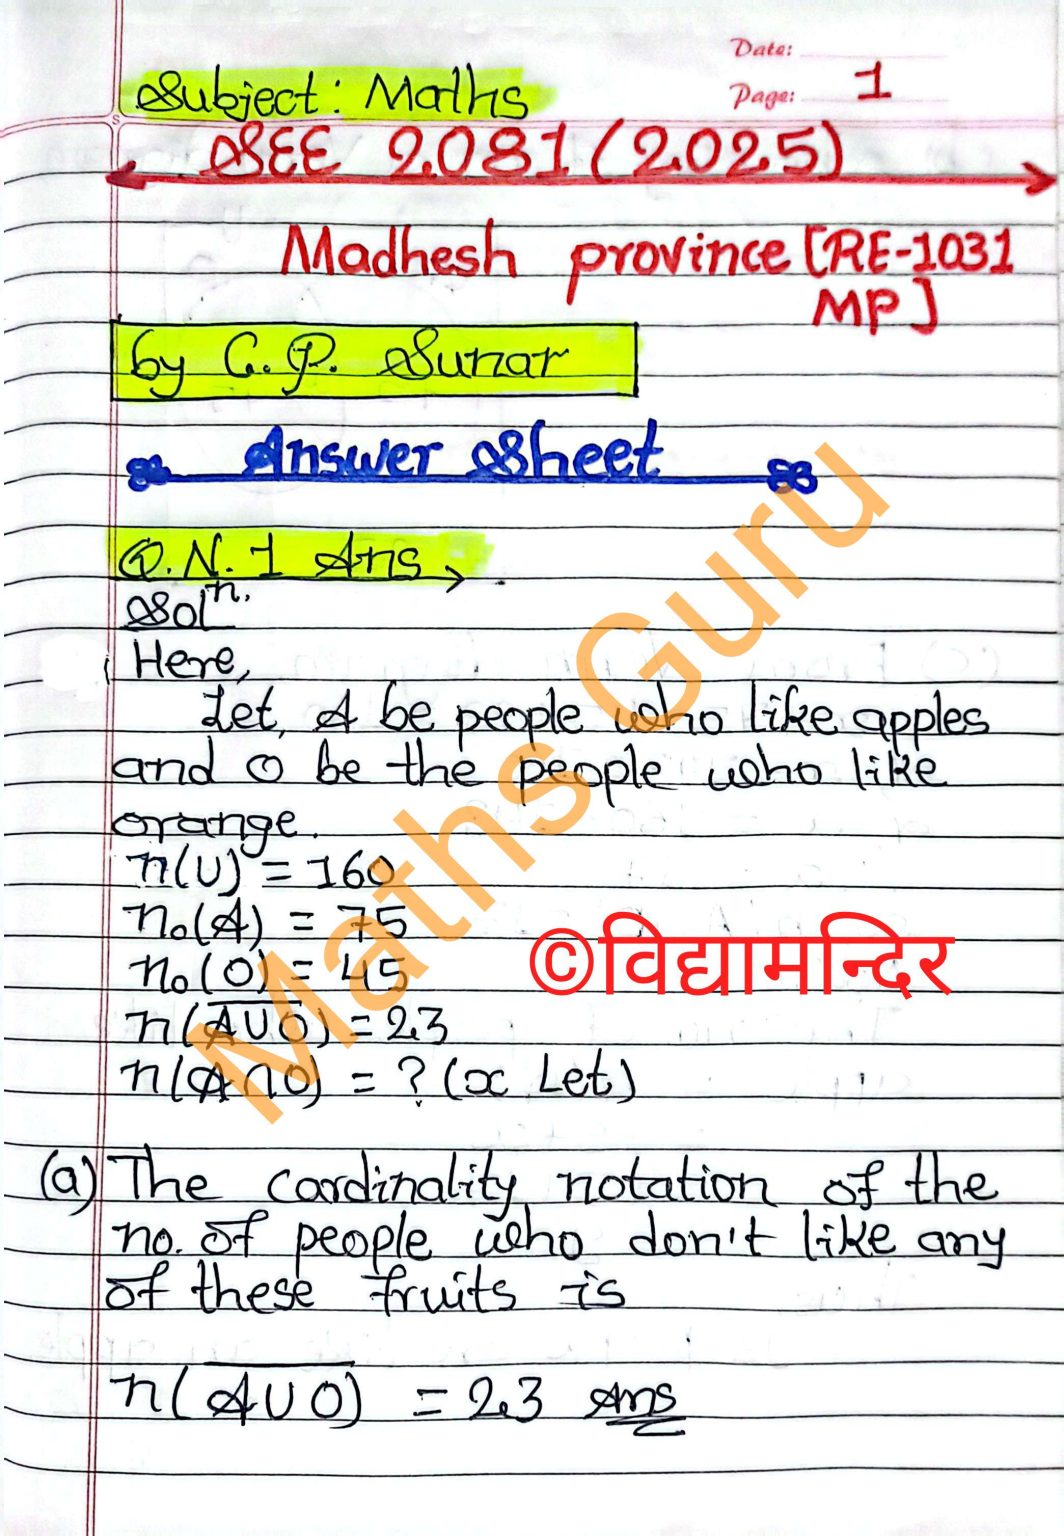 Date:
Page: 1
Subject: Maths
SEE 2081 (2025)
Madhesh province [RE-1031
MP]
by C.P. Sunar
Answer Sheet
Q.N. 1 Ans
Solⁿ.
Here,
Let, A be people who like apples
and O be the people who like
orange.
n(U) = 160
n₀(A) = 75
n₀(O) = 45
n(A̅ ̅U̅ ̅O̅) = 23
n(A∩O) = ? (x Let)
(a) The cardinality notation of the
no. of people who don't like any
of these fruits is
n(A̅ ̅U̅ ̅O̅) = 23 Ans
Maths Guru
©विद्यामन्दिर